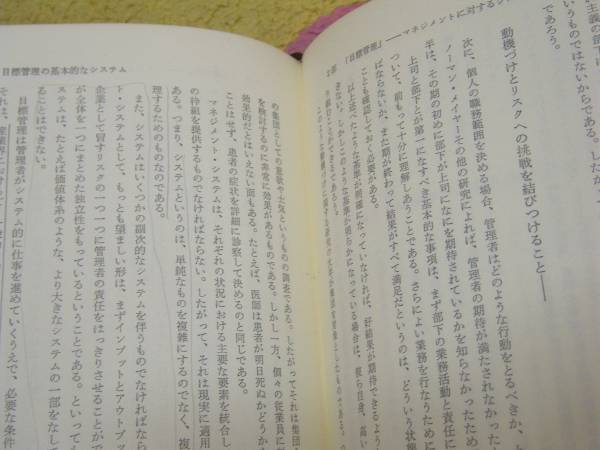 2部 「目標管理」――マネジメントに対するシ
主義の部
いうものではないからであ
であろう。
動機づけとリスクへの挑戦を結びつけること――
次に、個人の職務範囲を決める場合、管理者はどのような行動をとるべきか、
ノーマン・メイヤーその他の研究によれば、管理者の期待が満たされなかったため
半は、その期の初めに部下が上司になにを期待されているかを知らなかったため
上司と部下とが第一になすべき基本的な事項は、まず部下の業務活動と責任に
ついて、前もって十分に理解しあうことである。さらによい業務を行なうために
ばならないか、また期が終わって結果がすべて満足だというのは、どういう状態
ことも確認しておく必要がある。
以上述べたような基準が明確になっていなければ、好結果が期待できるよう
きない。しかしこのような基準が明らかになっている場合は、彼ら自身、高い
り組むことができる
目標管理の基本的なシステム
の集団としての意欲や士気というものの調査である。したがってそれは集団
を検討するのに非常に効果があるものである。しかし一方、個々の従業員に
効果的だとはいえない面もある。たとえば、医師は患者が明日死ぬかどうか
ことはせず、患者の症状を詳細に診察して決めるのと同じである。
マネジメント・システムは、それぞれの状況における主要な要素を統合し
の枠組を提供するものでなければならない。したがって、それは現実に適用
ある。つまり、システムというのは、単純なものを複雑にするのでなく、複
理するためのものなのである。
また、システムはいくつかの副次的なシステムを伴うものでなければなら
ト・システムとして、もっとも望ましい形は、まずインプットとアウトプッ
企業として冒すリスクの一つ一つに管理者の責任をはっきりさせることがで
が全体を一つにまとめた独立性をもっているということである。といっても
ステムは、たとえば価値体系のような、より大きなシステムの一部をなして
ることはできない。
目標管理は管理者がシステム的に仕事を進めていくうえで、必要な条件
それは、産業界において